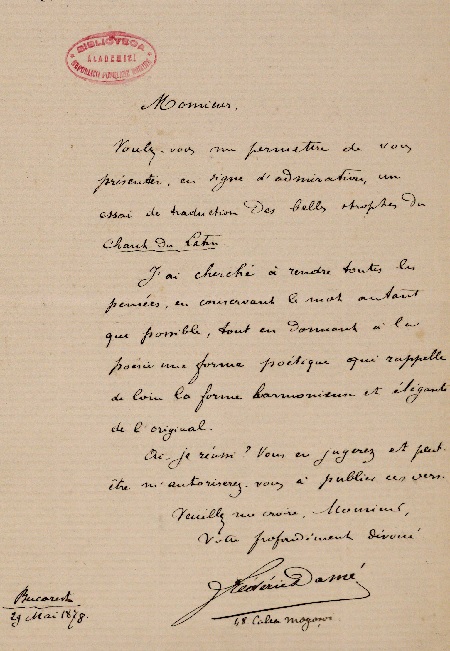 BIBLIOTECA
ACADEMIEI
REPUBLICII POPULARE ROMÂNE
Monsieur,
Voulez-vous me permettre de vous
présenter, en signe d'admiration, un
essai de traduction des belles strophes du
Chant du Latin.
J'ai cherché à rendre toutes les
pensées, en conservant le mot autant
que possible, tout en donnant à la
poésie une forme poétique qui rappelle
de loin la forme harmonieuse et élégante
de l'original.
Ai-je réussi? Vous en jugerez et peut-
être m'autoriserez-vous à publier ces vers.
Veuillez me croire, Monsieur,
Votre profondément dévoué
Frédéric Damé
48 Calea Mogoșoi
Bucarest
29 Mai 1878.